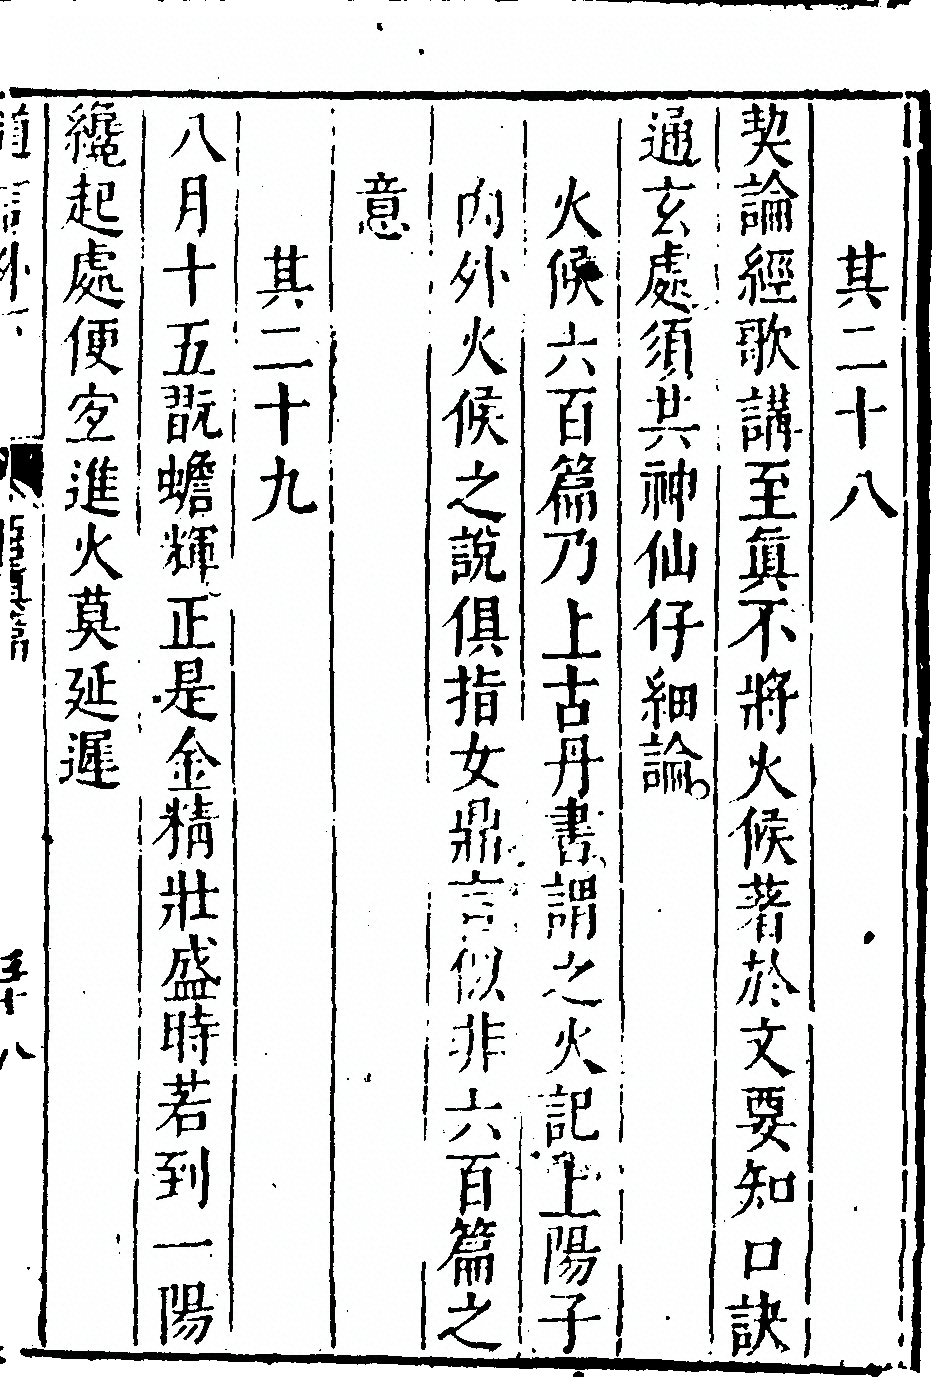 其二十八
契論經歌講至眞不將火候著於文要知口訣
通玄處須共神仙仔細論
火候六百篇乃上古丹書謂之火記上陽子
內外火候之說俱指女鼎言似非六百篇之
意
其二十九
八月十五翫蟾輝正是金精壯盛時若到一陽
纔起處便宜進火莫延遲